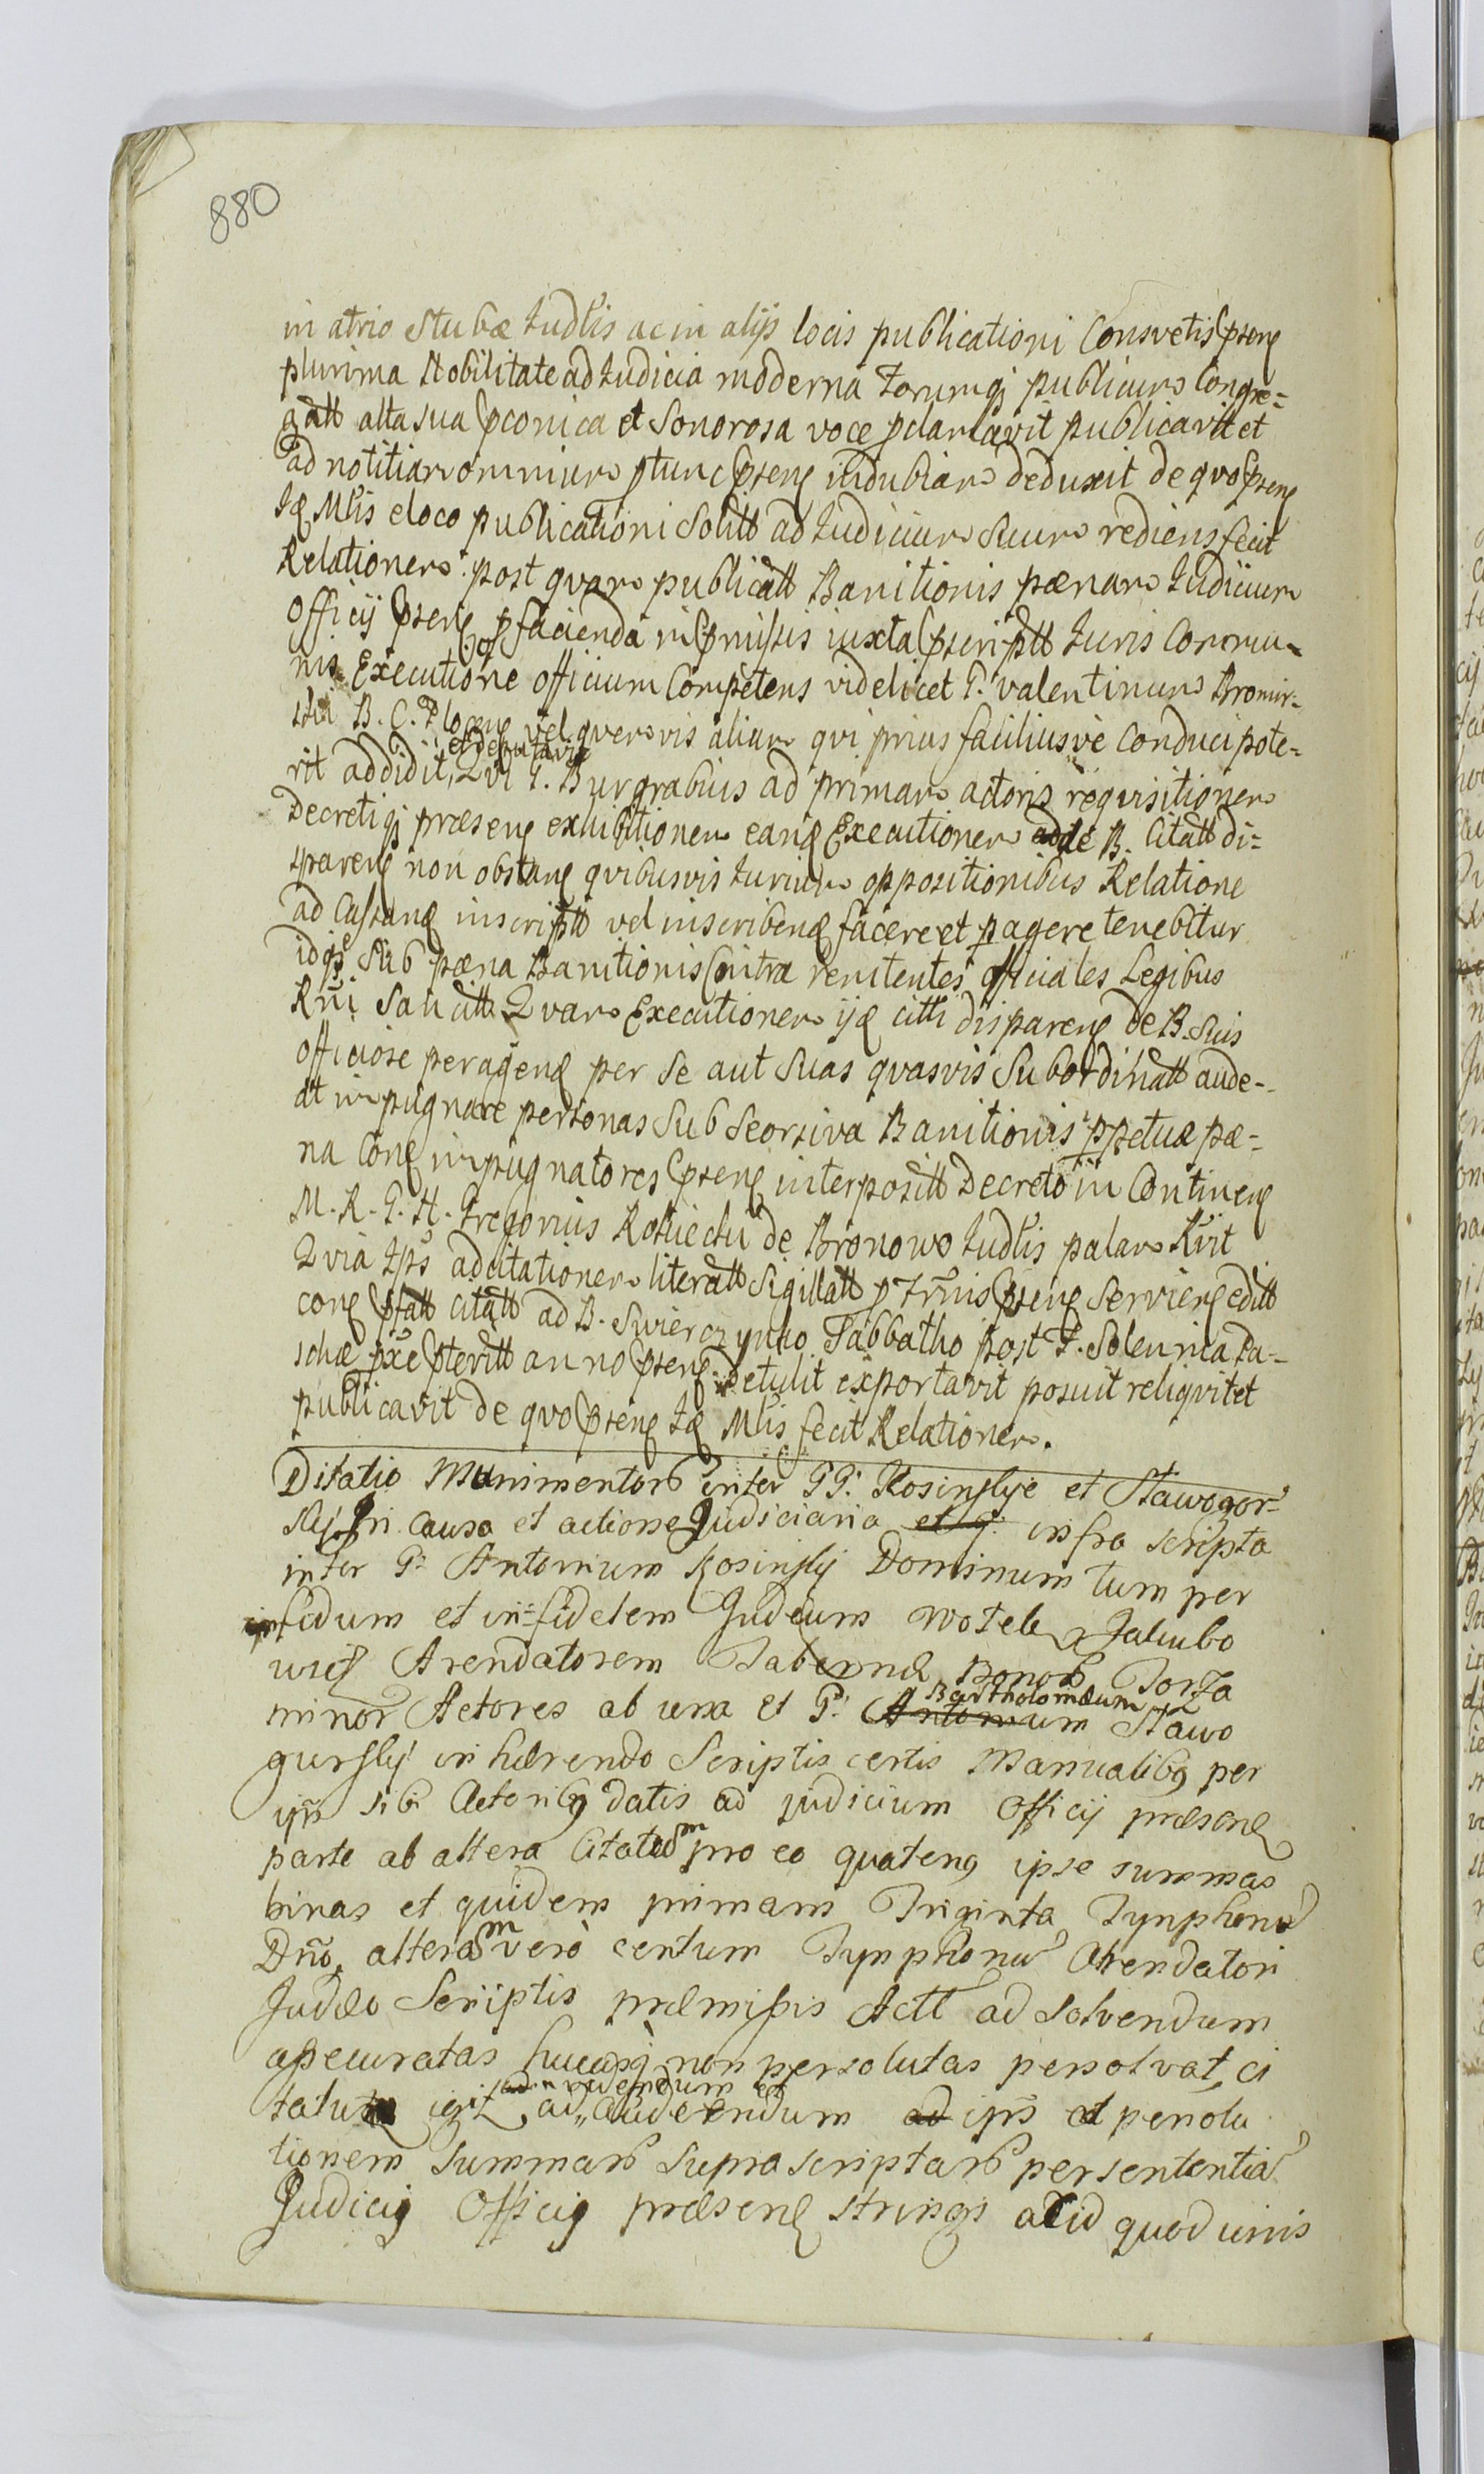 880
in atrio Stubæ Iudlis ac in alijs locis publicationi Consvetis pseñ
plurima Nobilitate ad Iudicia moderna Forumq publicum Congre=
gatt alta sua pconica et Sonorosa voce pclamavit publicavit et
ad notitiam omnium ptunc pseñ indubiam deduxit de qvo pseñ
Id Mlis e loco publicationi Solitt ad Iudicium Suum rediens fecit
Relationem. post qvam publicatt Banitionis pænam Iudicium
Officij pseñ p facienda in pmissis iuxta pscriptt Iuris Commu=
nis Executione officium Competens videlicet G. Valentinum Bromir=
ski B. C. Ploceñ vel qvemvis alium qvi prius faciliusve conduci pote=
rit addidit et deputavit, Qvi G. Burgrabius ad primam actoris reqvisitionem
Decretiq præseñ exhibitionem eand Executionem de B. Citatt di=
spareñ non obstañ qvibusvis Iurium oppositionibus Relatione
ad Castrañ inscriptt vel inscribend facere et pagere tenebitur
idq Sub pæna Banitionis Contra renitentes officiales Legibus
Rni Sancitt Qvam Executionem ijd citti dispareñ de B. Suis
officiose peragend per Se aut Suas qvasvis Subordinatt aude=
at impugnare personas Sub Seorsiva Banitionis ppetuæ pæ=
na Coñ impugnatores pseñ interpositt Decreto in Contineñ
M. R. G. H. Gregorius Rokicki de Bronowo Iudlis palam Rvit
Qvia Ips ad citationem literatt Sigillatt p Trnis pseñ Servieñ editt
coñ pfatt Citatt ad B. Swierczynko Sabbatho post F. Solennia Pa=
schæ pxe pteritt anno pseñ Detulit exportavit posuit reliqvit et
publicavit de qvo pseñ Id Mlis fecit Relationem.
Ditatio Munimentor inter GG. Kosinskie et Stawogor=
skij In causa et actione Judiciaria et G. infra scripta
inter G. Antonium Kosinskij Dominum tum per
infidum et in=fidelem Judæum Wotek Jakubo
wicz Arendatorem Tabernæ Bonor Torfa
minor Actores ab una et G. Antonium Bartholomæum Stawo
gurskij inhærendo Scriptis certis Manualibq per
ipn sibi Actoribq datis ad judicium Officij præsend
parte ab altera Citatum pro eo quateng ipse summas
binas et quidem primam Triginta Tynphonu
Dno, alteram vero centum Tynphonu Arendatori
Judæo Scriptis præmissis Actt ad solvendum
assecuratas hucusq non persolutas persolvat, ci
tatus igit ad videndum et ad audiendum ad ips et persolu
tionem Summar Suprascriptar per sententia
Judicij Officij præsend stringi ac id quod iuris